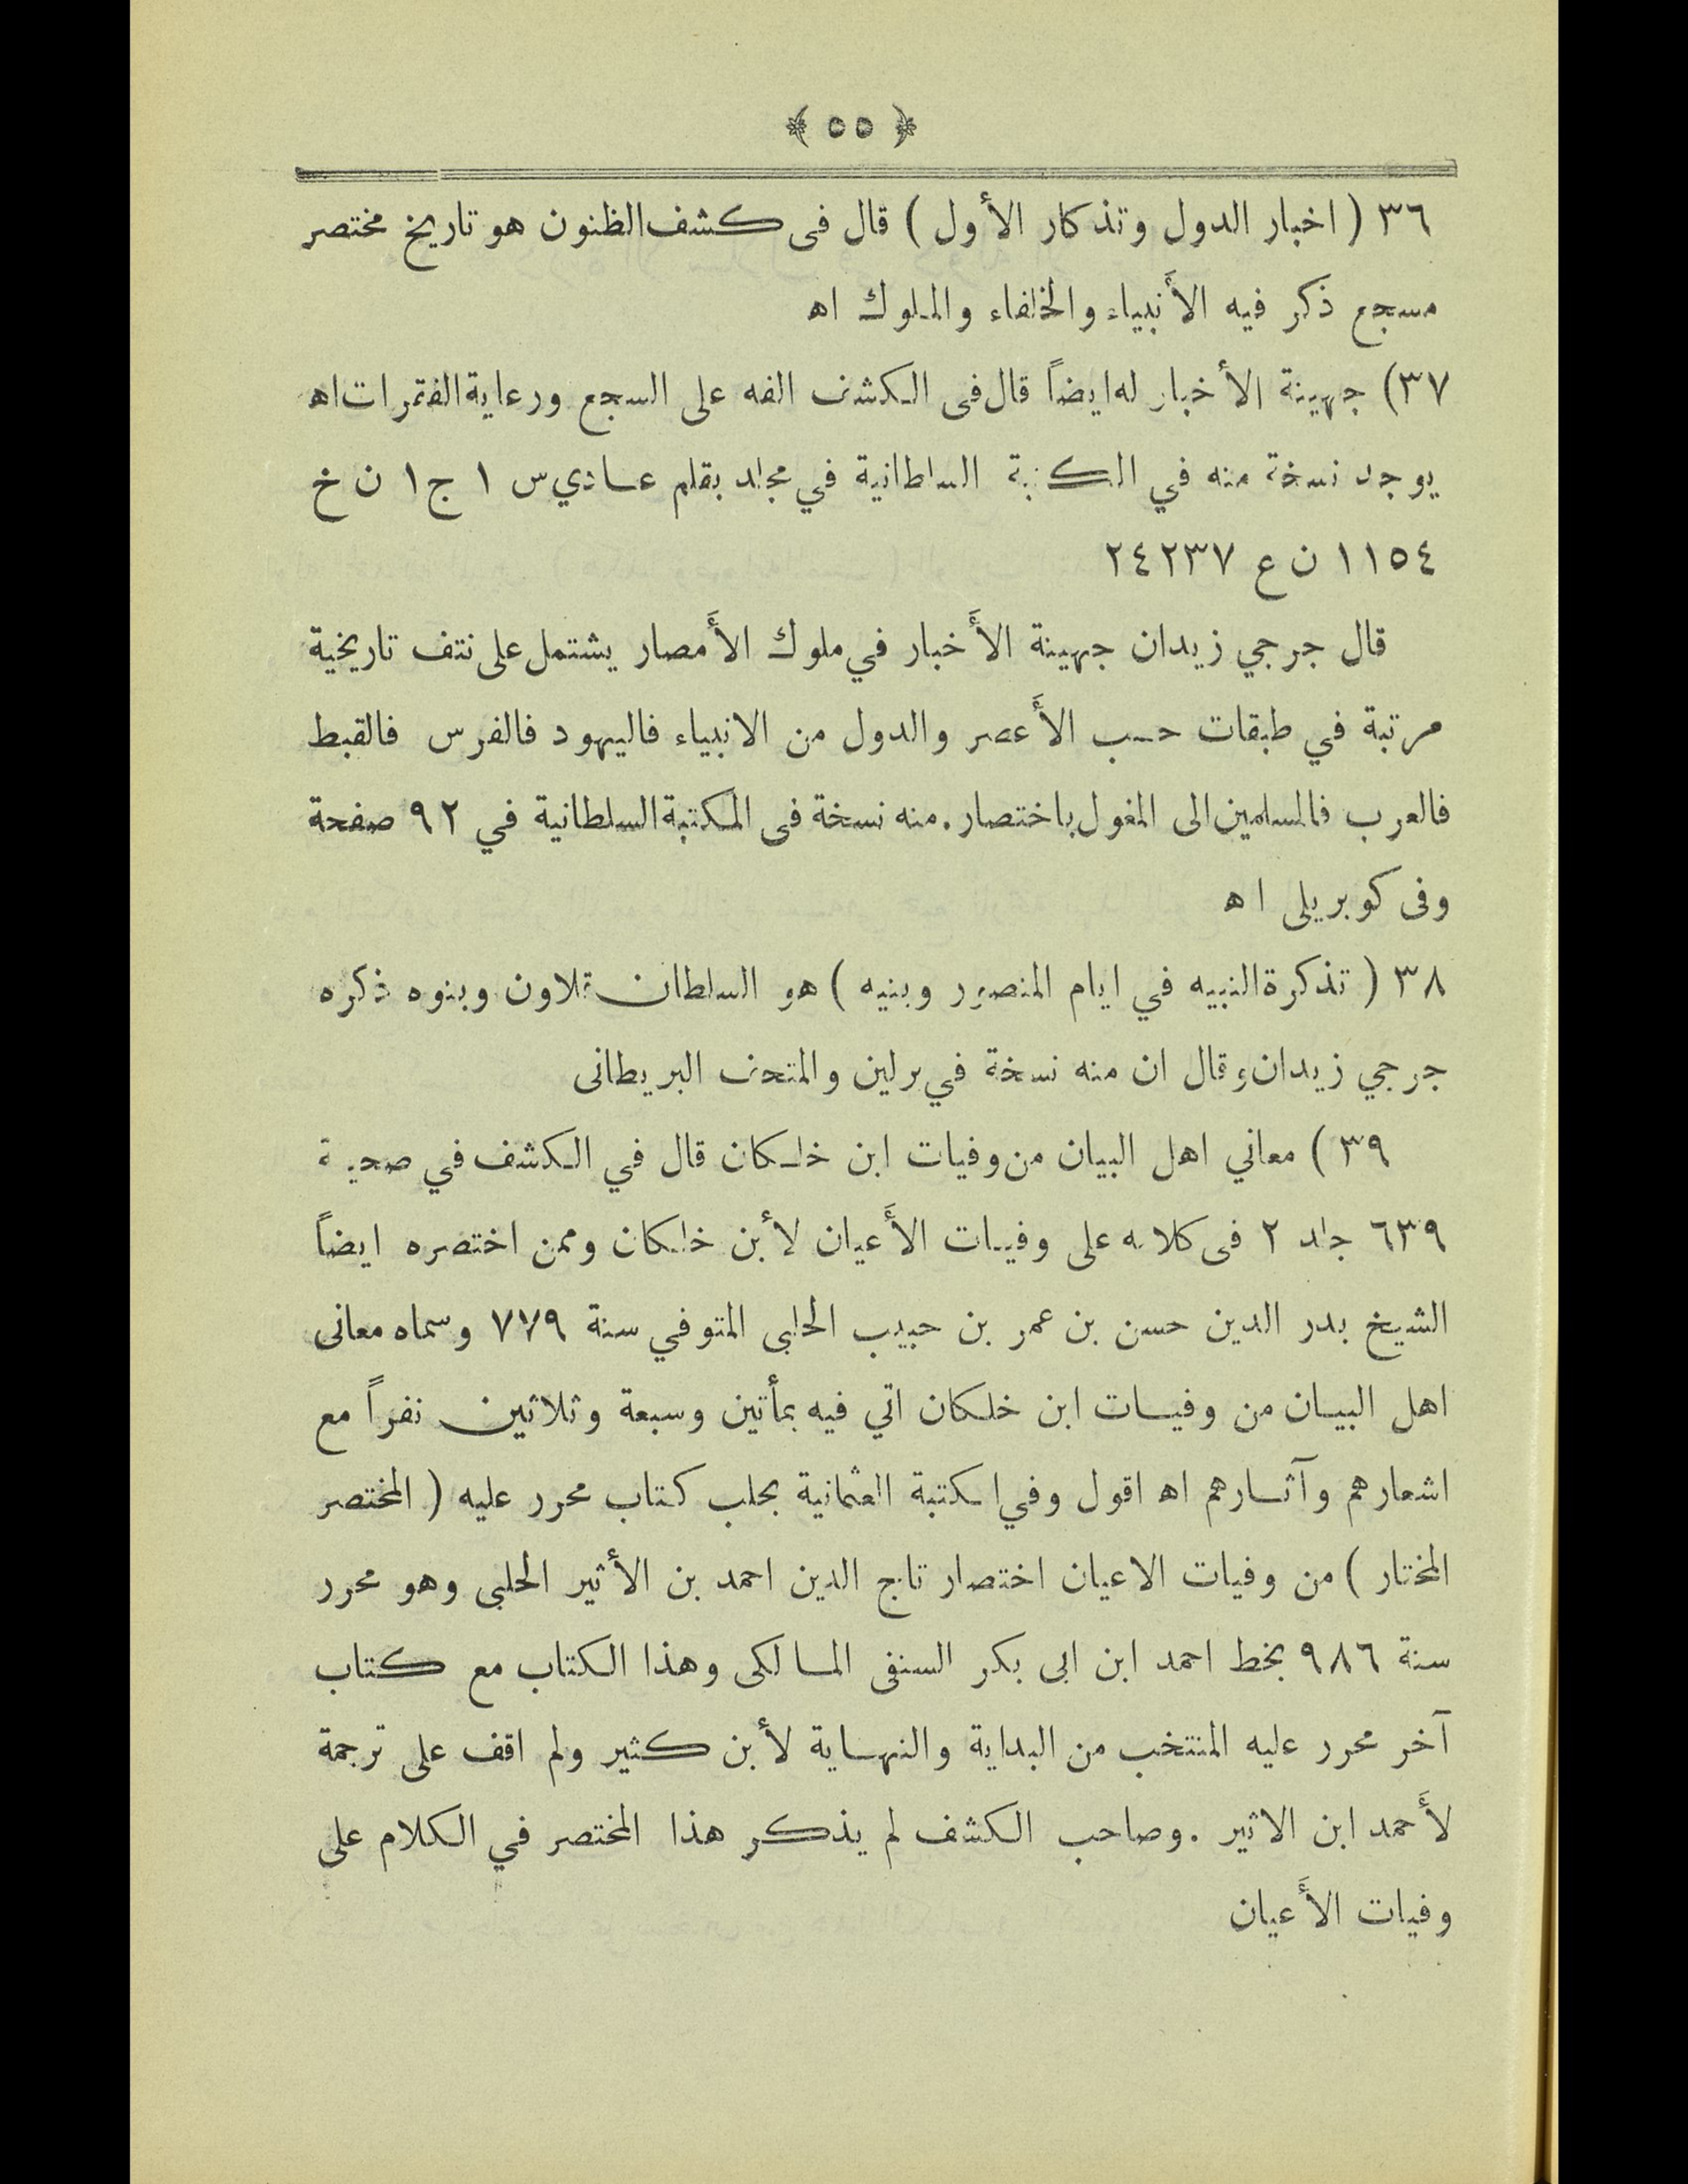 ﴿ ٥٥ ﴾
٣٦ ( اخبار الدول وتذكار الأول ) قال فى كشف الظنون هو تاريخ مختصر
مسجع ذكر فيه الأنبياء والخلفاء والملوك اه
٣٧) جهينة الأخبار له ايضاً قال فى الكشف الفه على السجع ورعاية الفقرات اه
يوجد نسخة منه في السلطانية في مجلد بقلم عادي س ١ ج ١ ن خ
١١٥٤ ن ع ٢٤٢٣٧
قال جرجي زيدان جهينة الأخبار في ملوك الأمصار يشتمل على نتف تاريخية
مرتبة في طبقات حسب الأعصر والدول من الانبياء فاليهود فالفرس فالقبط
فالعرب فالمسلمين الى المغول باختصار . منه نسخة فى المكتبة السلطانية في ٩٢ صفحة
وفى كوبريلى اه
٣٨ ( تذكرة النبيه في ايام المنصور وبنيه ) هو السلطان قلاون وبنوه ذكره
جرجي زيدان وقال ان منه نسخة في برلين والمتحف البريطانى
٣٩ ) معاني اهل البيان من وفيات ابن خلكان قال في الكشف في
٦٣٩ جلد ٢ فى كلامه على وفيات الأعيان لأبن خلكان وممن اختصره ايضاً
الشيخ بدر الدين حسن بن عمر بن حبيب الحلبى المتوفي سنة ٧٧٩ وسماه معانى
اهل البيان من وفيات ابن خلكان اتي فيه بمأتين وسبعة وثلاثين نفراً مع
اشعارهم وآثارهم اه اقول وفي المكتبة العثمانية بحلب كتاب محرر عليه ( المختصر
المختار ) من وفيات الاعيان اختصار تاج الدين احمد بن الأثير الحلبى وهو محرر
سنة ٩٨٦ بخط احمد ابن ابى بكر السنفى المالكى وهذا الكتاب مع كتاب
آخر محرر عليه المنتخب من البداية والنهاية لأبن كثير ولم اقف على ترجمة
لأحمد ابن الاثير . وصاحب الكشف لم يذكر هذا المختصر في الكلام على
وفيات الأعيان